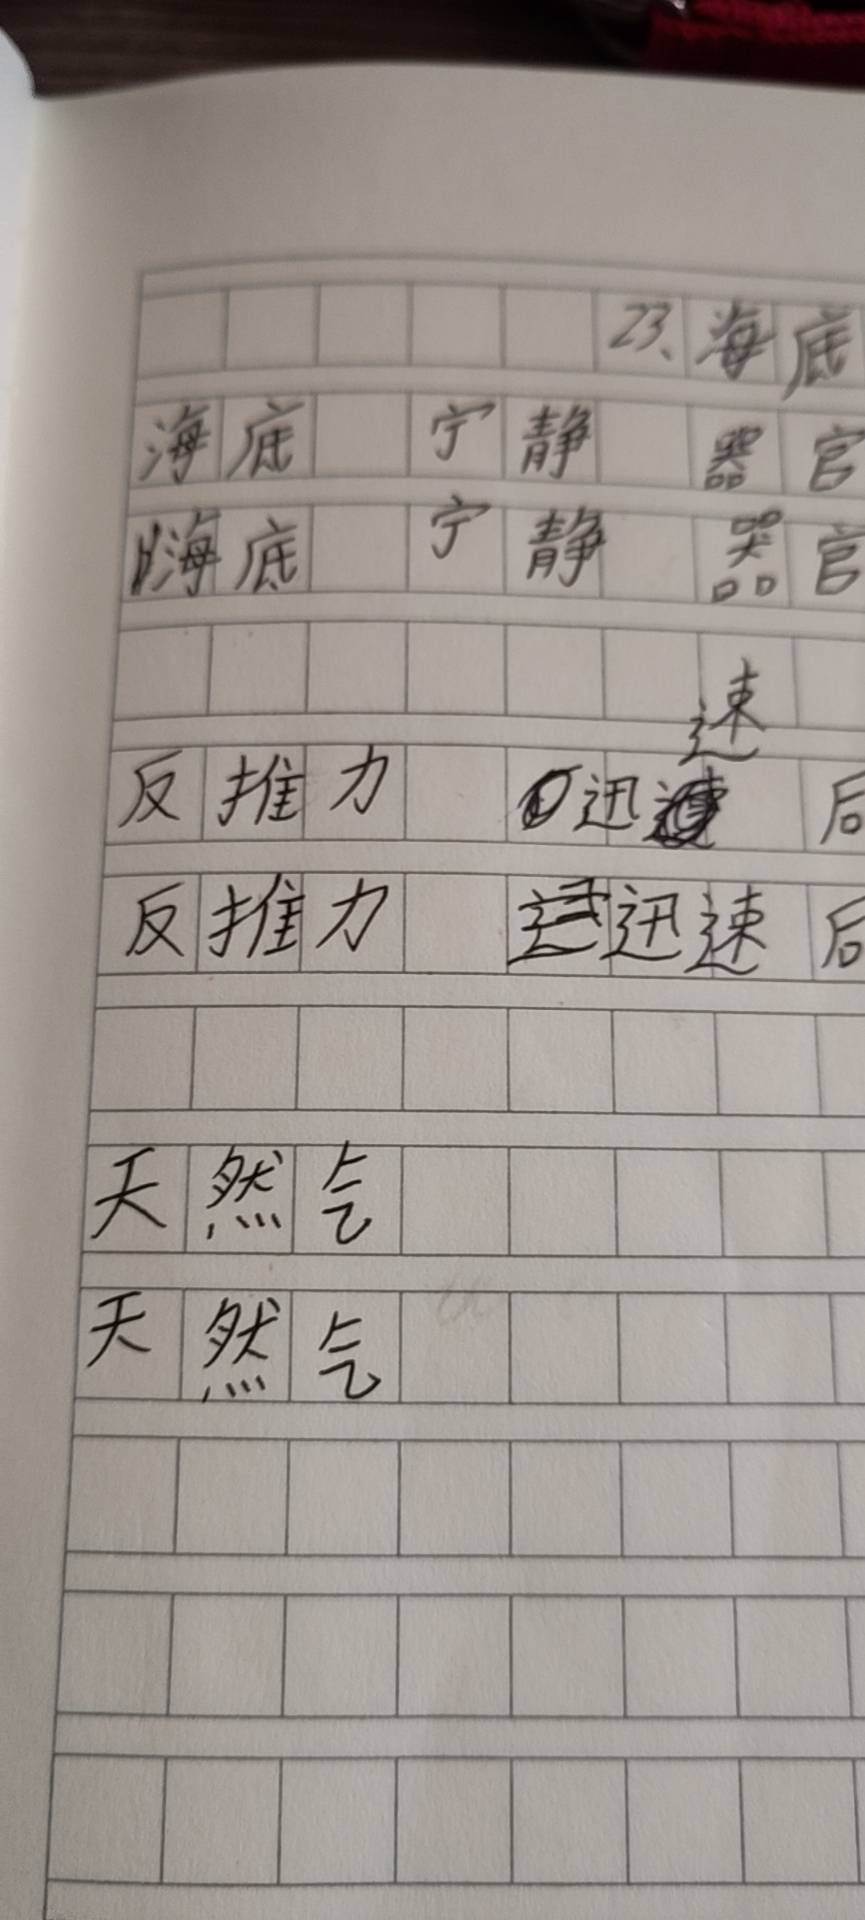 23、海底
海底 宁静 器官
海底 宁静 器官
速
反推力 迅 后
反推力 迅速 后
天然气
天然气